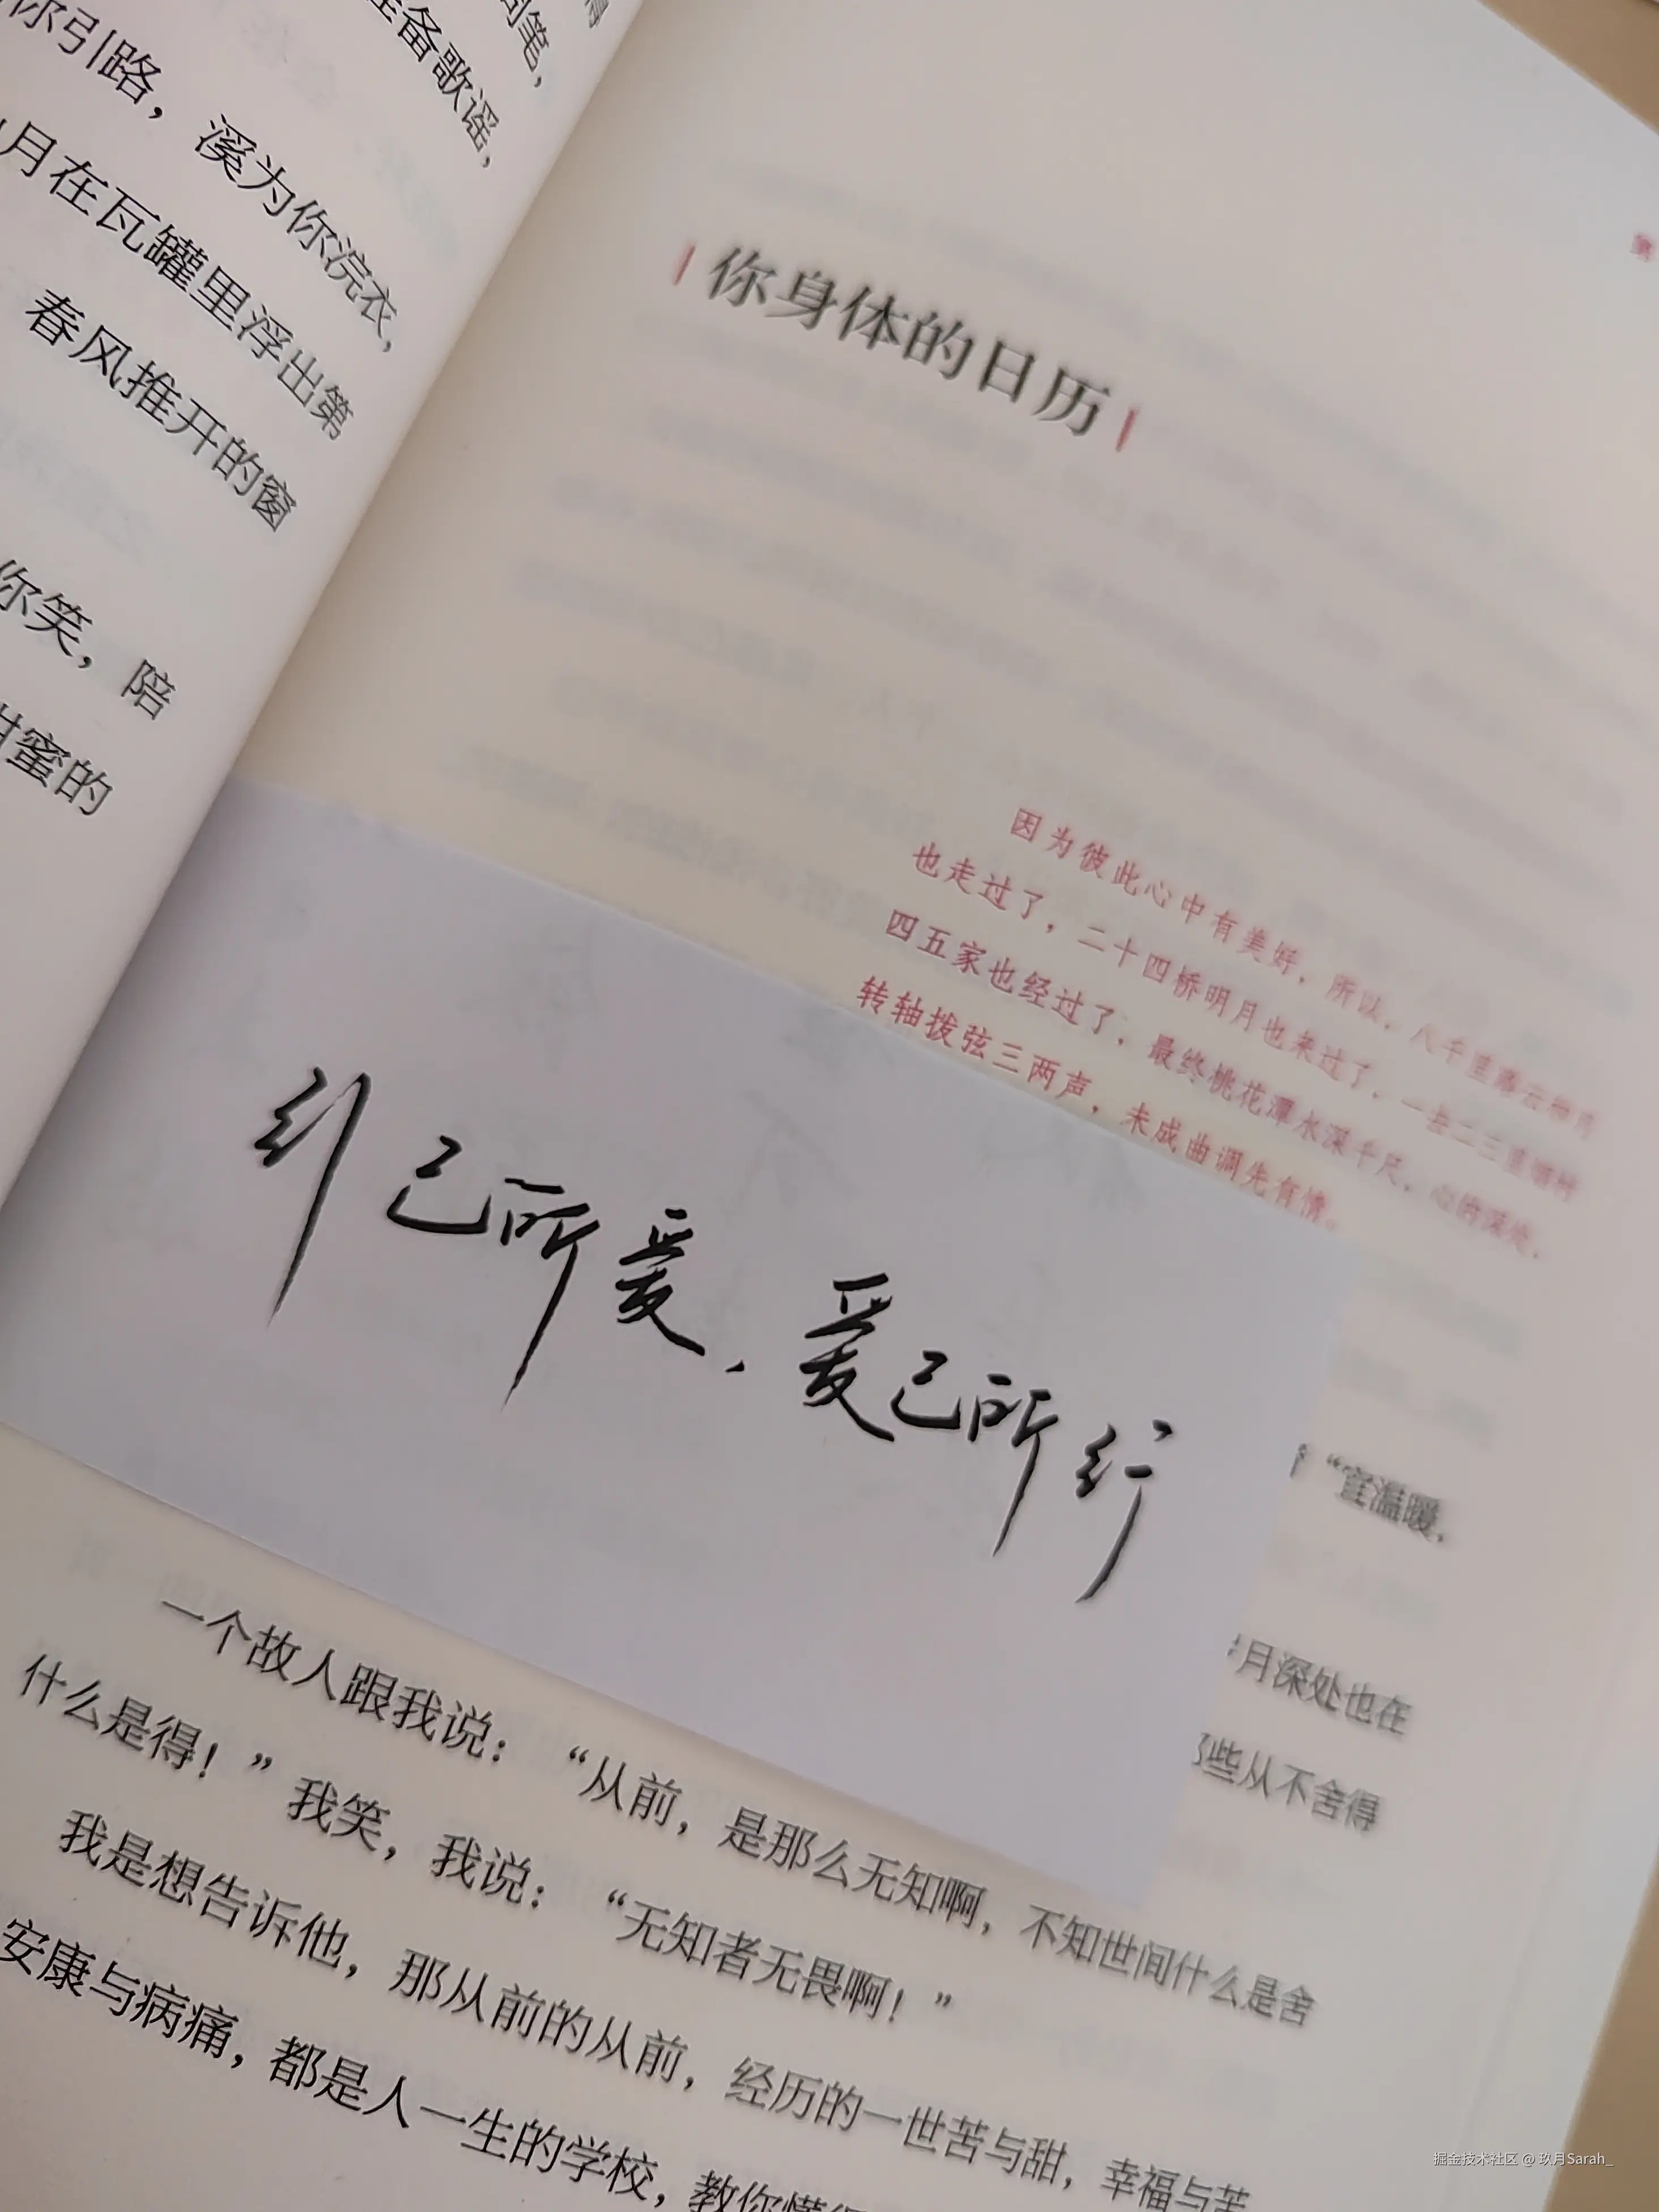 同笔，
准备歌谣，
你引路，溪为你浣衣，
月在瓦罐里浮出第
春风推开的窗
你笑，陪
甜蜜的
你身体的日历
因为彼此心中有美好，所以，八千里路云和月
也走过了，二十四桥明月也来过了，一去二三里烟村
四五家也经过了，最终桃花潭水深千尺，心的深处，
转轴拨弦三两声，未成曲调先有情。
行己所爱，爱己所行
“宜温暖，
月深处也在
些从不舍得
一个故人跟我说：“从前，是那么无知啊，不知世间什么是舍
什么是得！”我笑，我说：“无知者无畏啊！”
我是想告诉他，那从前的从前，经历的一世苦与甜，幸福与苦
安康与病痛，都是人一生的学校，教你懂得
掘金技术社区 @ 玖月Sarah_